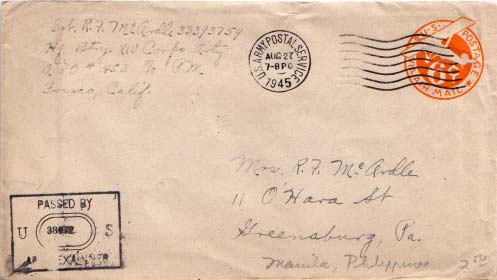 Sgt. R. F. McArdle 33393759
Hq. Btry. XIV Corps Arty.
APO # 453 % PM.
Frisco, Calif.
U.S. ARMY POSTAL SERVICE
AUG 27
7-8 PM
1945
U.S. POSTAGE
VIA AIR MAIL
Mrs. R. F. McArdle
11 O'Hara St
Greensburg, Pa.
Manila, Philippines
PASSED BY
U 38072 S
ARMY EXAMINER